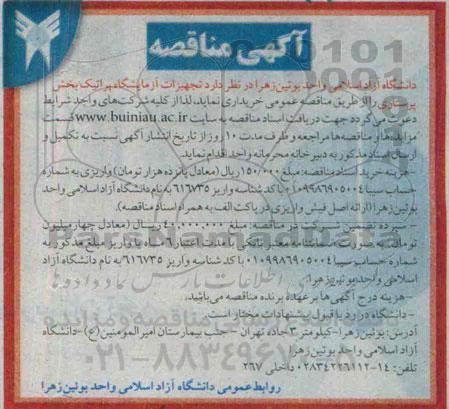 آگهی مناقصه
دانشگاه آزاد اسلامی واحد بوئین زهرا در نظر دارد تجهیزات آزمایشگاه پراتیک بخش
پرستاری را از طریق مناقصه عمومی خریداری نماید، لذا از کلیه شرکت‌های واجد شرایط
دعوت می‌گردد جهت دریافت اسناد مناقصه به سایت www.buiniau.ac.ir قسمت
مزایده‌ها و مناقصه‌ها مراجعه و ظرف مدت ۱۰ روز از تاریخ انتشار آگهی نسبت به تکمیل و
ارسال اسناد مذکور به دبیرخانه محرمانه واحد اقدام نماید.
-هزینه خرید اسناد مناقصه: مبلغ ۱۵۰/۰۰۰ ریال (معادل پانزده هزار تومان) واریزی به شماره
حساب سیبا ۰۱۰۹۹۸۶۹۰۵۰۰۴ با کد شناسه واریز ۶۱۶۷۳۵ به نام دانشگاه آزاد اسلامی واحد
بوئین زهرا (ارائه اصل فیش واریزی در پاکت الف به همراه اسناد مناقصه).
- سپرده تضمین شرکت در مناقصه: مبلغ ۴۰/۰۰۰/۰۰۰ ریال (معادل چهار میلیون
تومان) به صورت ضمانتنامه معتبر بانکی با مدت اعتبار ۶ ماه یا واریز مبلغ مذکور به
شماره حساب سیبا ۰۱۰۹۹۸۶۹۰۵۰۰۴ با کد شناسه واریز ۶۱۶۷۳۵ به نام دانشگاه آزاد
اسلامی واحد بوئین زهرا.
-هزینه درج آگهی‌ها بر عهده برنده مناقصه می‌باشد.
-دانشگاه در رد یا قبول پیشنهادات مختار است.
آدرس: بوئین زهرا-کیلومتر ۳ جاده تهران - جنب بیمارستان امیرالمومنین (ع) -دانشگاه
آزاد اسلامی واحد بوئین زهرا
تلفن: ۱۴-۰۲۸۳۴۲۲۶۱۱۲ داخلی ۲۶۷
روابط عمومی دانشگاه آزاد اسلامی واحد بوئین زهرا
۰۲۱-۸۸۳۴۹۶۷۰